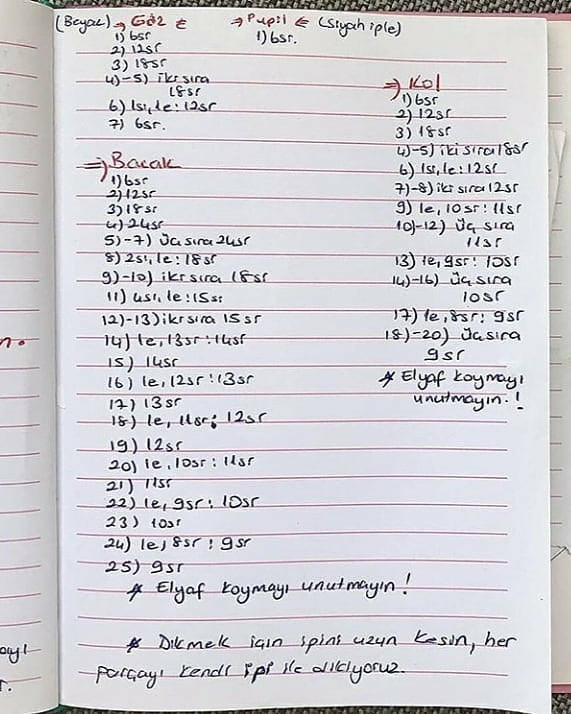 (Beyaz) → Göz ←
1) 6sr
2) 12sr
3) 18sr
4)-5) iki sıra
18sr
6) 1sı, le : 12sr
7) 6sr.
→ Pupil ← (Siyah iple)
1) 6sr.
⇒ Bacak
1) 6sr
2) 12sr
3) 18sr
4) 24sr
5)-7) üç sıra 24sr
8) 2sı, le : 18sr
9)-10) iki sıra 18sr
11) 4sı, le : 15sr
12)-13) iki sıra 15sr
14) le, 13sr : 14sr
15) 14sr
16) le, 12sr : 13sr
17) 13sr
18) le, 11sr : 12sr
19) 12sr
20) le, 10sr : 11sr
21) 11sr
22) le, 9sr : 10sr
23) 10sr
24) le, 8sr : 9sr
25) 9sr
* Elyaf koymayı unutmayın !
⇒ Kol
1) 6sr
2) 12sr
3) 18sr
4)-5) iki sıra 18sr
6) 1sı, le : 12sr
7)-8) iki sıra 12sr
9) le, 10sr : 11sr
10)-12) üç sıra
11sr
13) le, 9sr : 10sr
14)-16) üç sıra
10sr
17) le, 8sr : 9sr
18)-20) üç sıra
9sr
* Elyaf koymayı
unutmayın. !
* Dikmek için ipini uzun kesin, her
parçayı kendi ipi ile dikiyoruz.